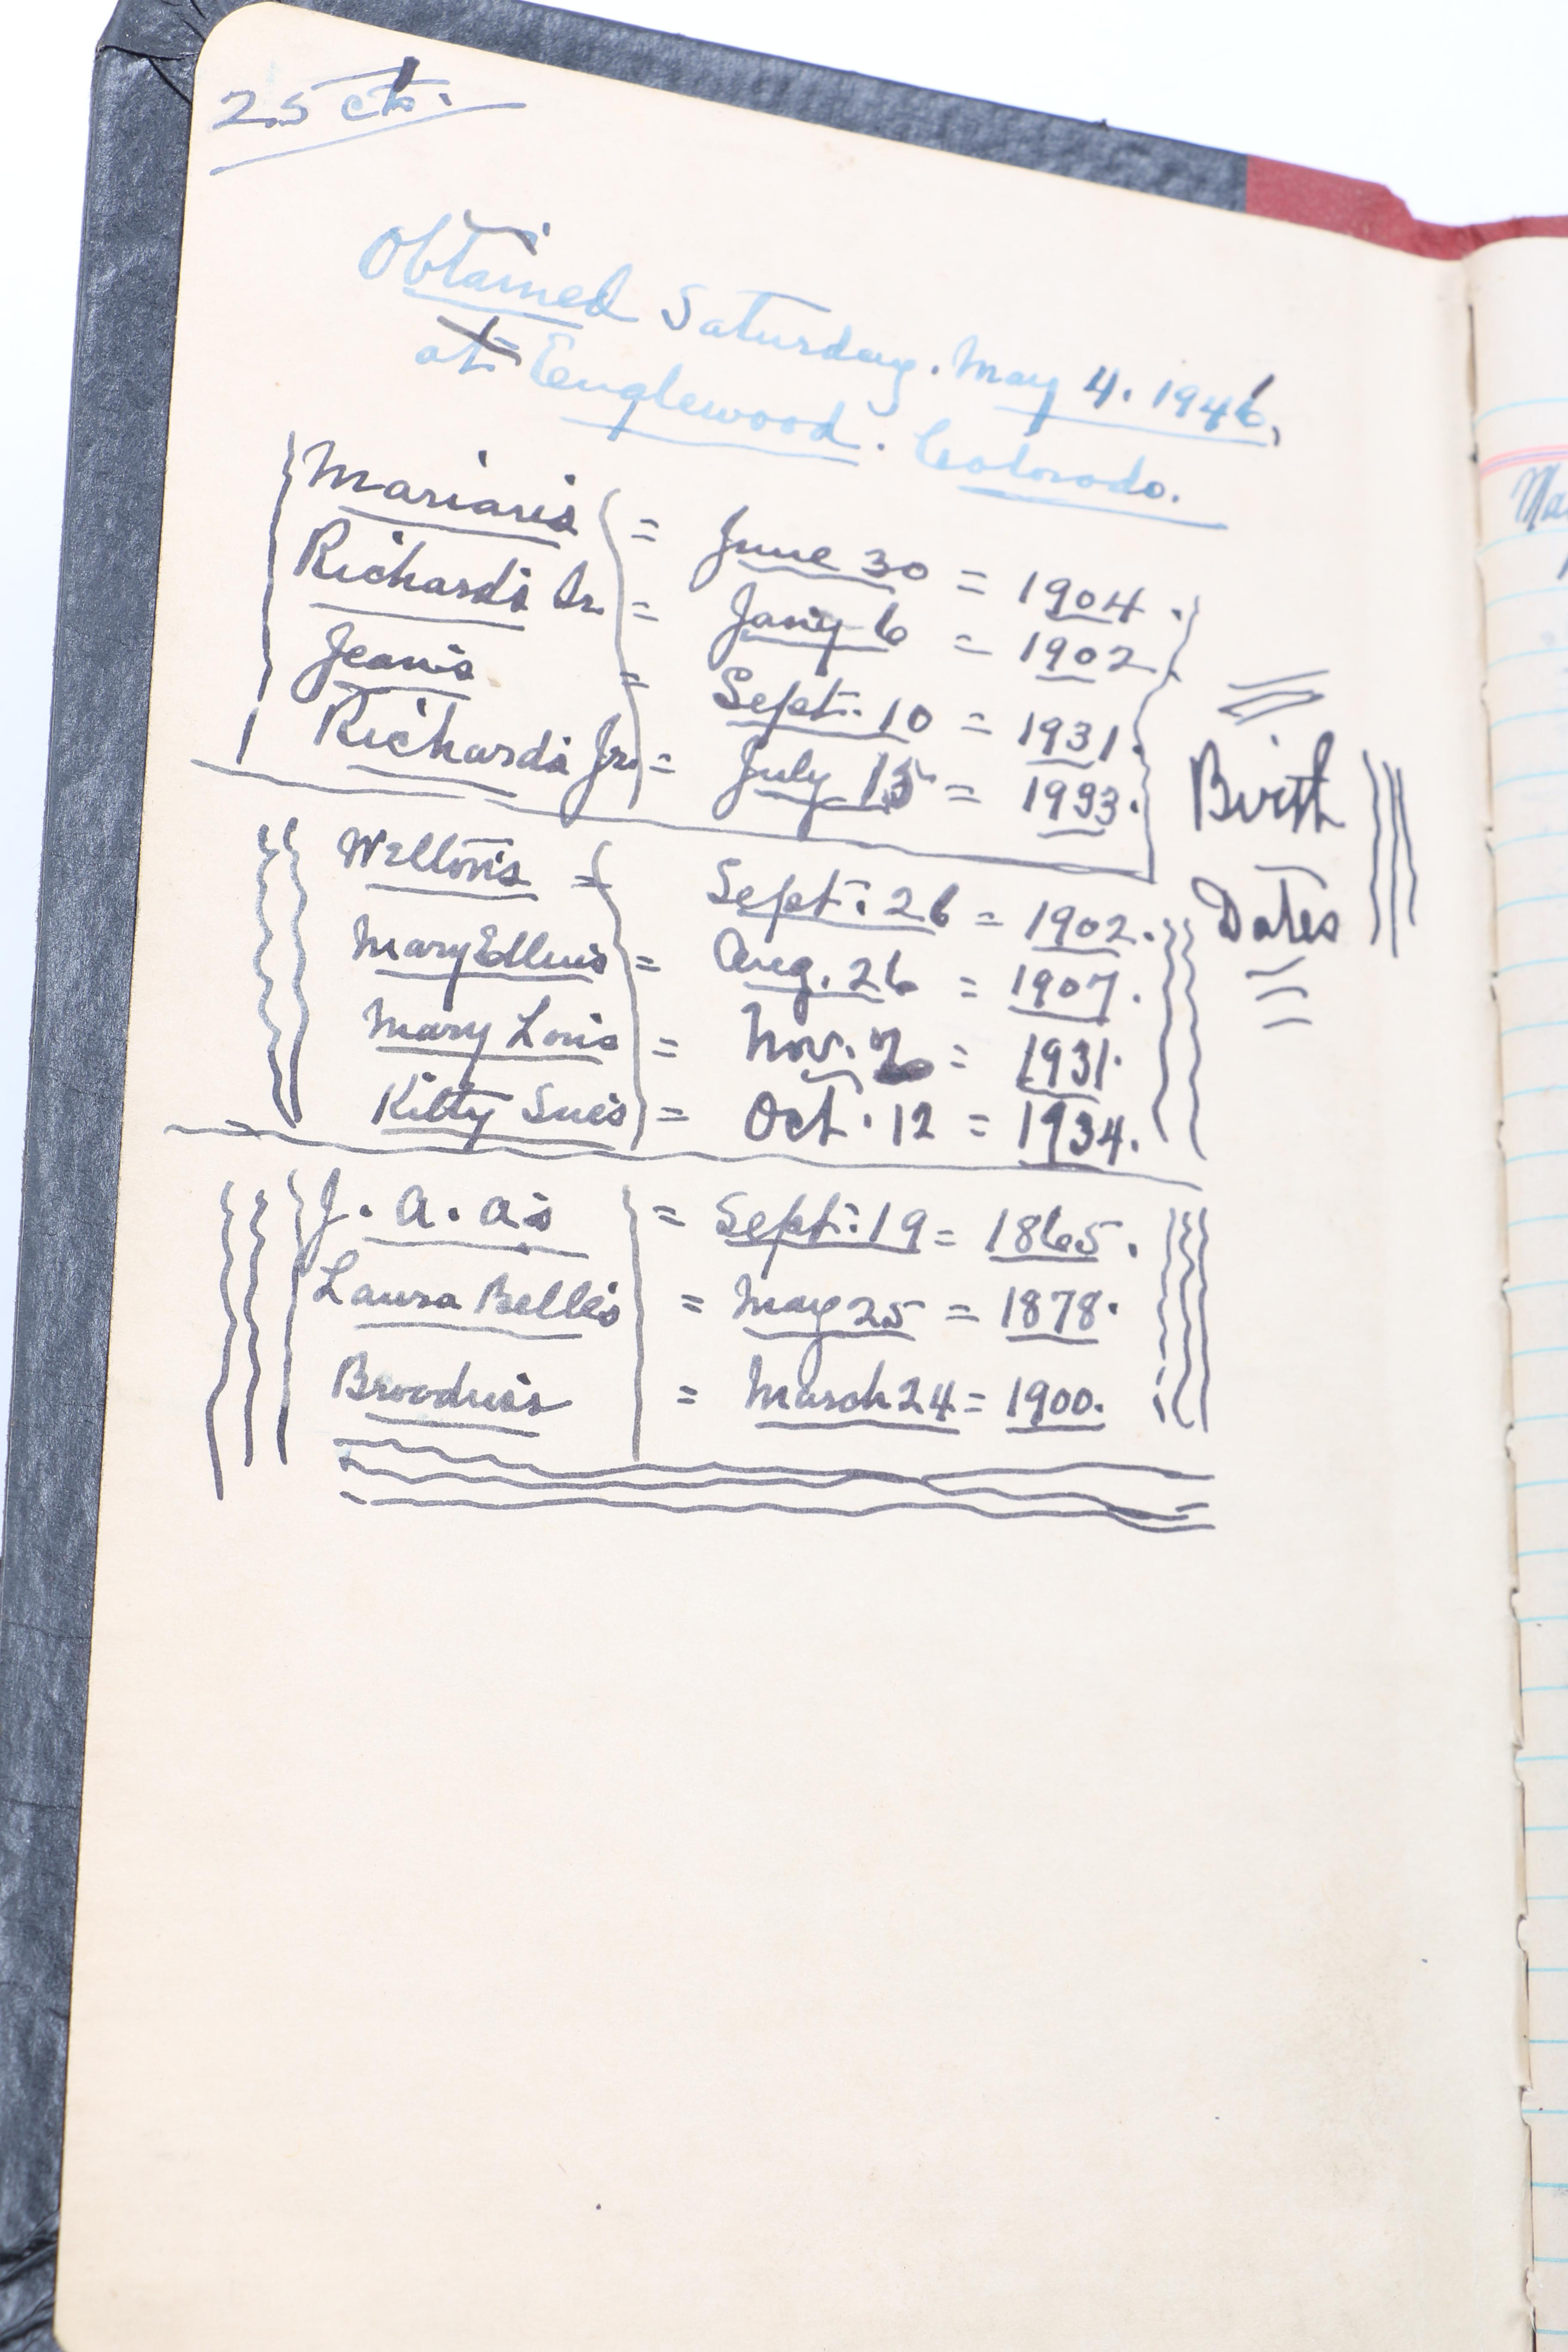 25 cts.
Obtained Saturday. May 4. 1946,
at Englewood. Colorado.
Marian's = June 30 = 1904.
Richard's Sr. = Jan'y 6 = 1902.
Jean's = Sept. 10 = 1931.
Richard's Jr. = July 15 = 1933.
Birth
Welton's = Sept. 26 = 1902.
Dates
Mary Ellen's = Aug. 26 = 1907.
Mary Lou's = Nov. = 1931.
Kitty Sue's = Oct. 12 = 1934.
J. A. A's = Sept. 19 = 1865.
Laura Belle's = May 25 = 1878.
Broadus's = March 24 = 1900.